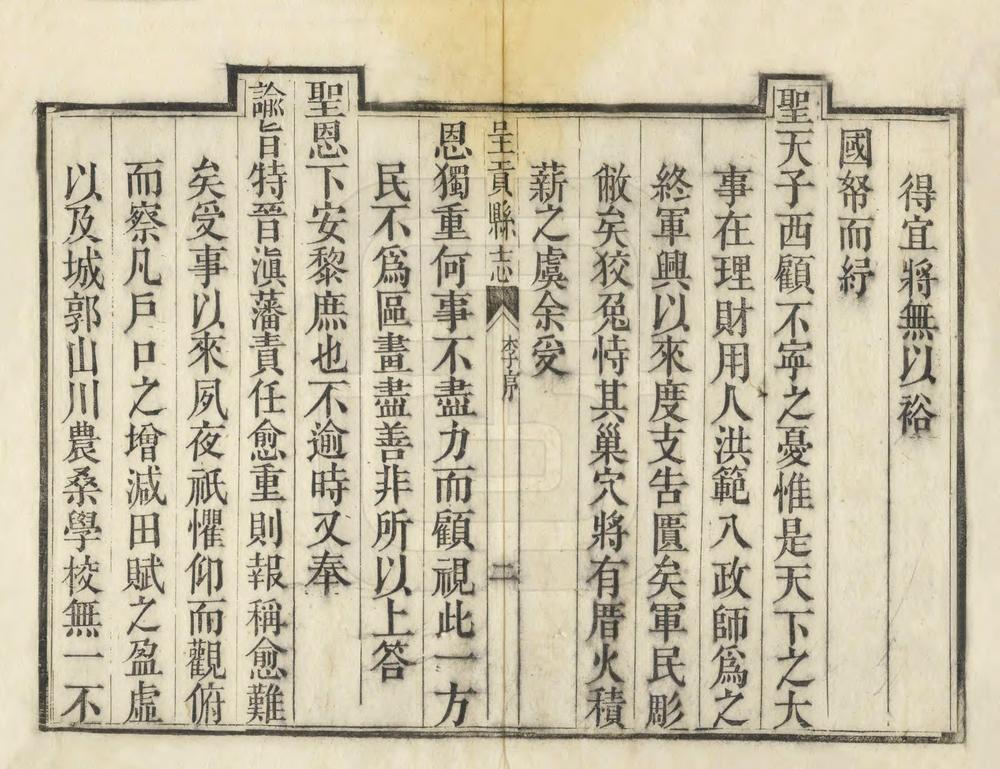 得宜將無以裕
國帑而紓
聖天子西顧不寧之憂惟是天下之大
事在理財用人洪範八政師爲之
終軍興以來度支告匱矣軍民彫
敝矣狡兔恃其巢穴將有厝火積
薪之虞余受
呈貢縣志
李序
二
恩獨重何事不盡力而顧視此一方
民不爲區畫盡善非所以上答
聖恩下安黎庶也不逾時又奉
諭旨特晉滇藩責任愈重則報稱愈難
矣受事以來夙夜祇懼仰而觀俯
而察凡戶口之增減田賦之盈虛
以及城郭山川農桑學校無一不